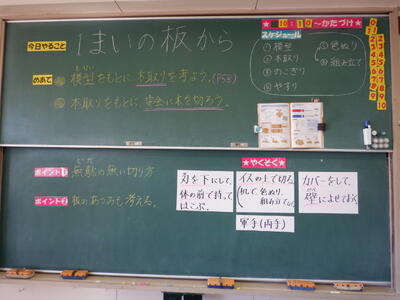 今日やること
1まいの板から
めあて
模型をもとに木取りを考よう。(P53)
木取りをもとに安全に木を切ろう。
★10:10〜かたづけ★
スケジュール
①模型
②木取り
③のこぎり
④やすり
⑤色ぬり
⑥組み立て
0
1
2
3
4
5
6
7
8
9
10
ポイント1
無駄の無い切り方
むだ
ポイント2
板のあつみも考える。
★やくそく★
刃を下にして、
体の前で持って
はこぶ。
イスの上で切る。
(机で、色ぬり、
組み立てなど
カバーをして、
かべ
壁によせておく
軍手(両手)